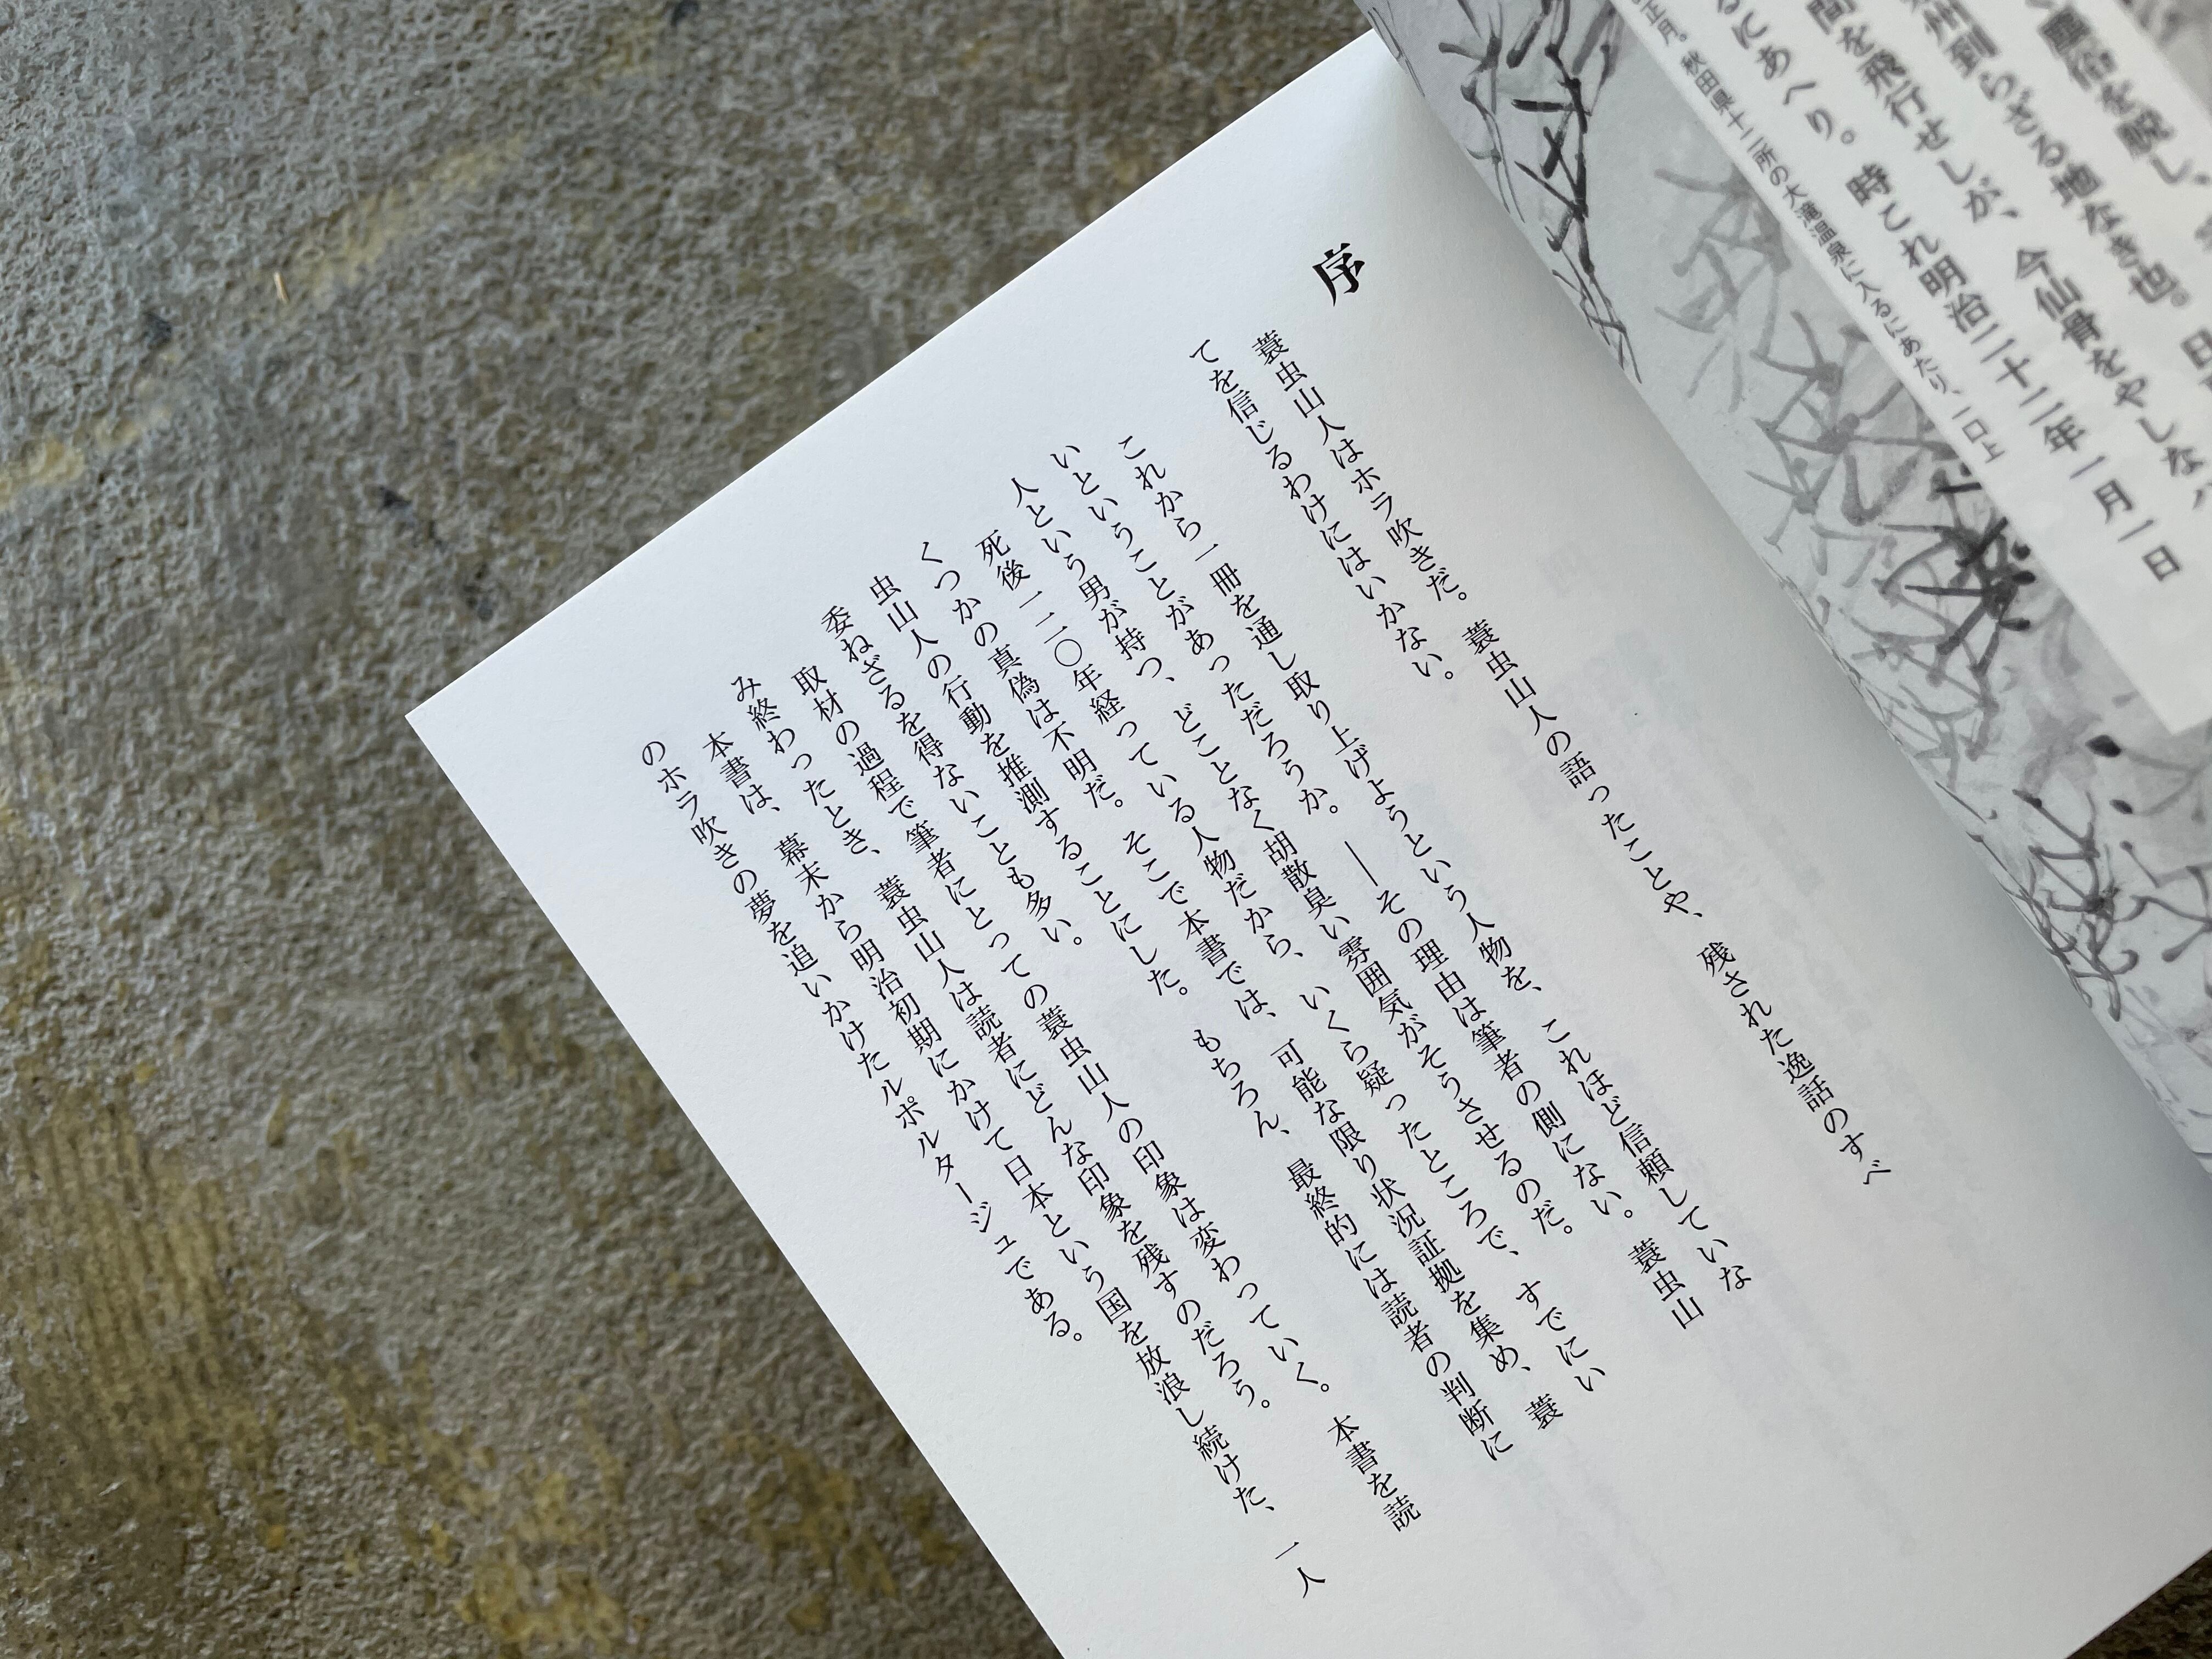 塵俗を脱し、
州到らざる地なき也。日
間を飛行せしが、今仙骨をやしな
るにあへり。時これ明治二十二年一月一日
正月。秋田県十二所の大滝温泉に入るにあたり、一口上
序
蓑虫山人はホラ吹きだ。蓑虫山人の語ったことや、残された逸話のすべ
てを信じるわけにはいかない。
これから一冊を通し取り上げようという人物を、これほど信頼していな
いということがあっただろうか。――その理由は筆者の側にない。蓑虫山
人という男が持つ、どことなく胡散臭い雰囲気がそうさせるのだ。
死後一二〇年経っている人物だから、いくら疑ったところで、すでにい
くつかの真偽は不明だ。そこで本書では、可能な限り状況証拠を集め、蓑
虫山人の行動を推測することにした。もちろん、最終的には読者の判断に
委ねざるを得ないことも多い。
取材の過程で筆者にとっての蓑虫山人の印象は変わっていく。本書を読
み終わったとき、蓑虫山人は読者にどんな印象を残すのだろう。
本書は、幕末から明治初期にかけて日本という国を放浪し続けた、一人
のホラ吹きの夢を追いかけたルポルタージュである。